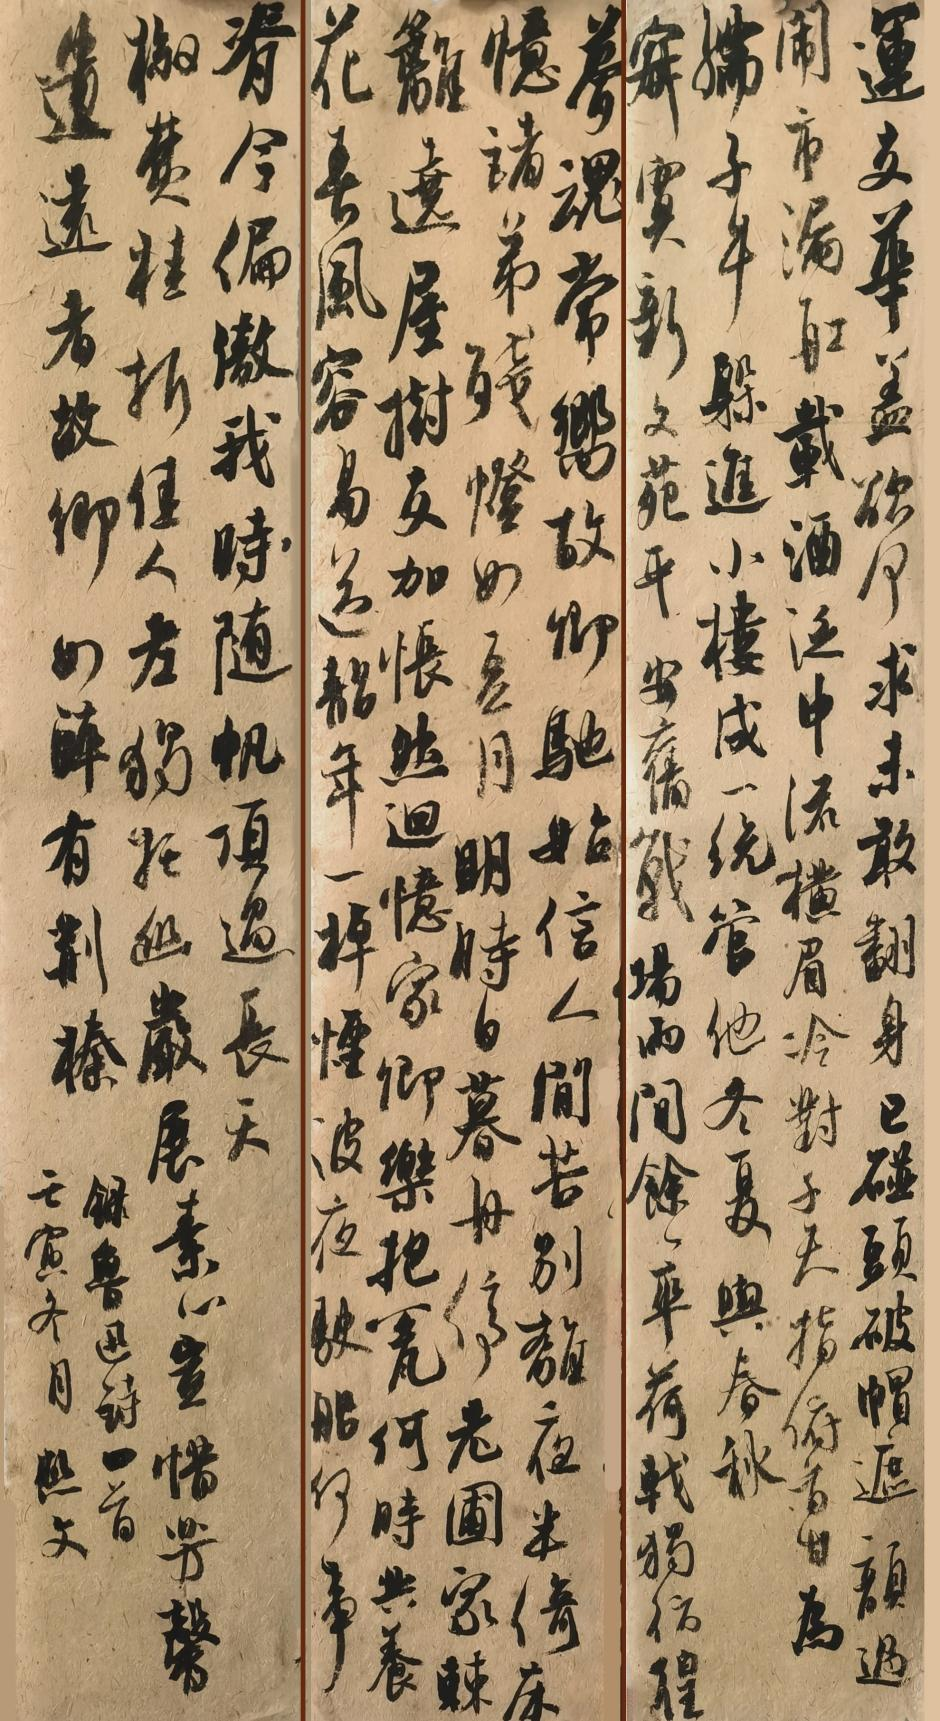 運交華盖欲何求未敢翻身已碰頭破帽遮顔過
闹市漏舡載酒泛中流横眉冷對千夫指俯首甘為
孺子牛躲進小樓成一统管他冬夏與春秋
寂寞新文苑平安舊戰場兩間餘一卒荷戟獨彷徨
夢魂常嚮故鄉馳始信人間苦别離夜半倚床
憶諸弟殘燈如豆月明時日暮舟停老圃家棘
籬遶屋樹交加悵然迴憶家鄉樂抱甕何時共養
花春風容易送韶年一棹煙波夜駛船何事
脊令偏傲我時随帆頂過長天
椒焚桂折佳人老獨託幽巖展素心豈惜芳馨
遺遠者故鄉如醉有荆榛
録魯迅詩一首
壬寅冬月